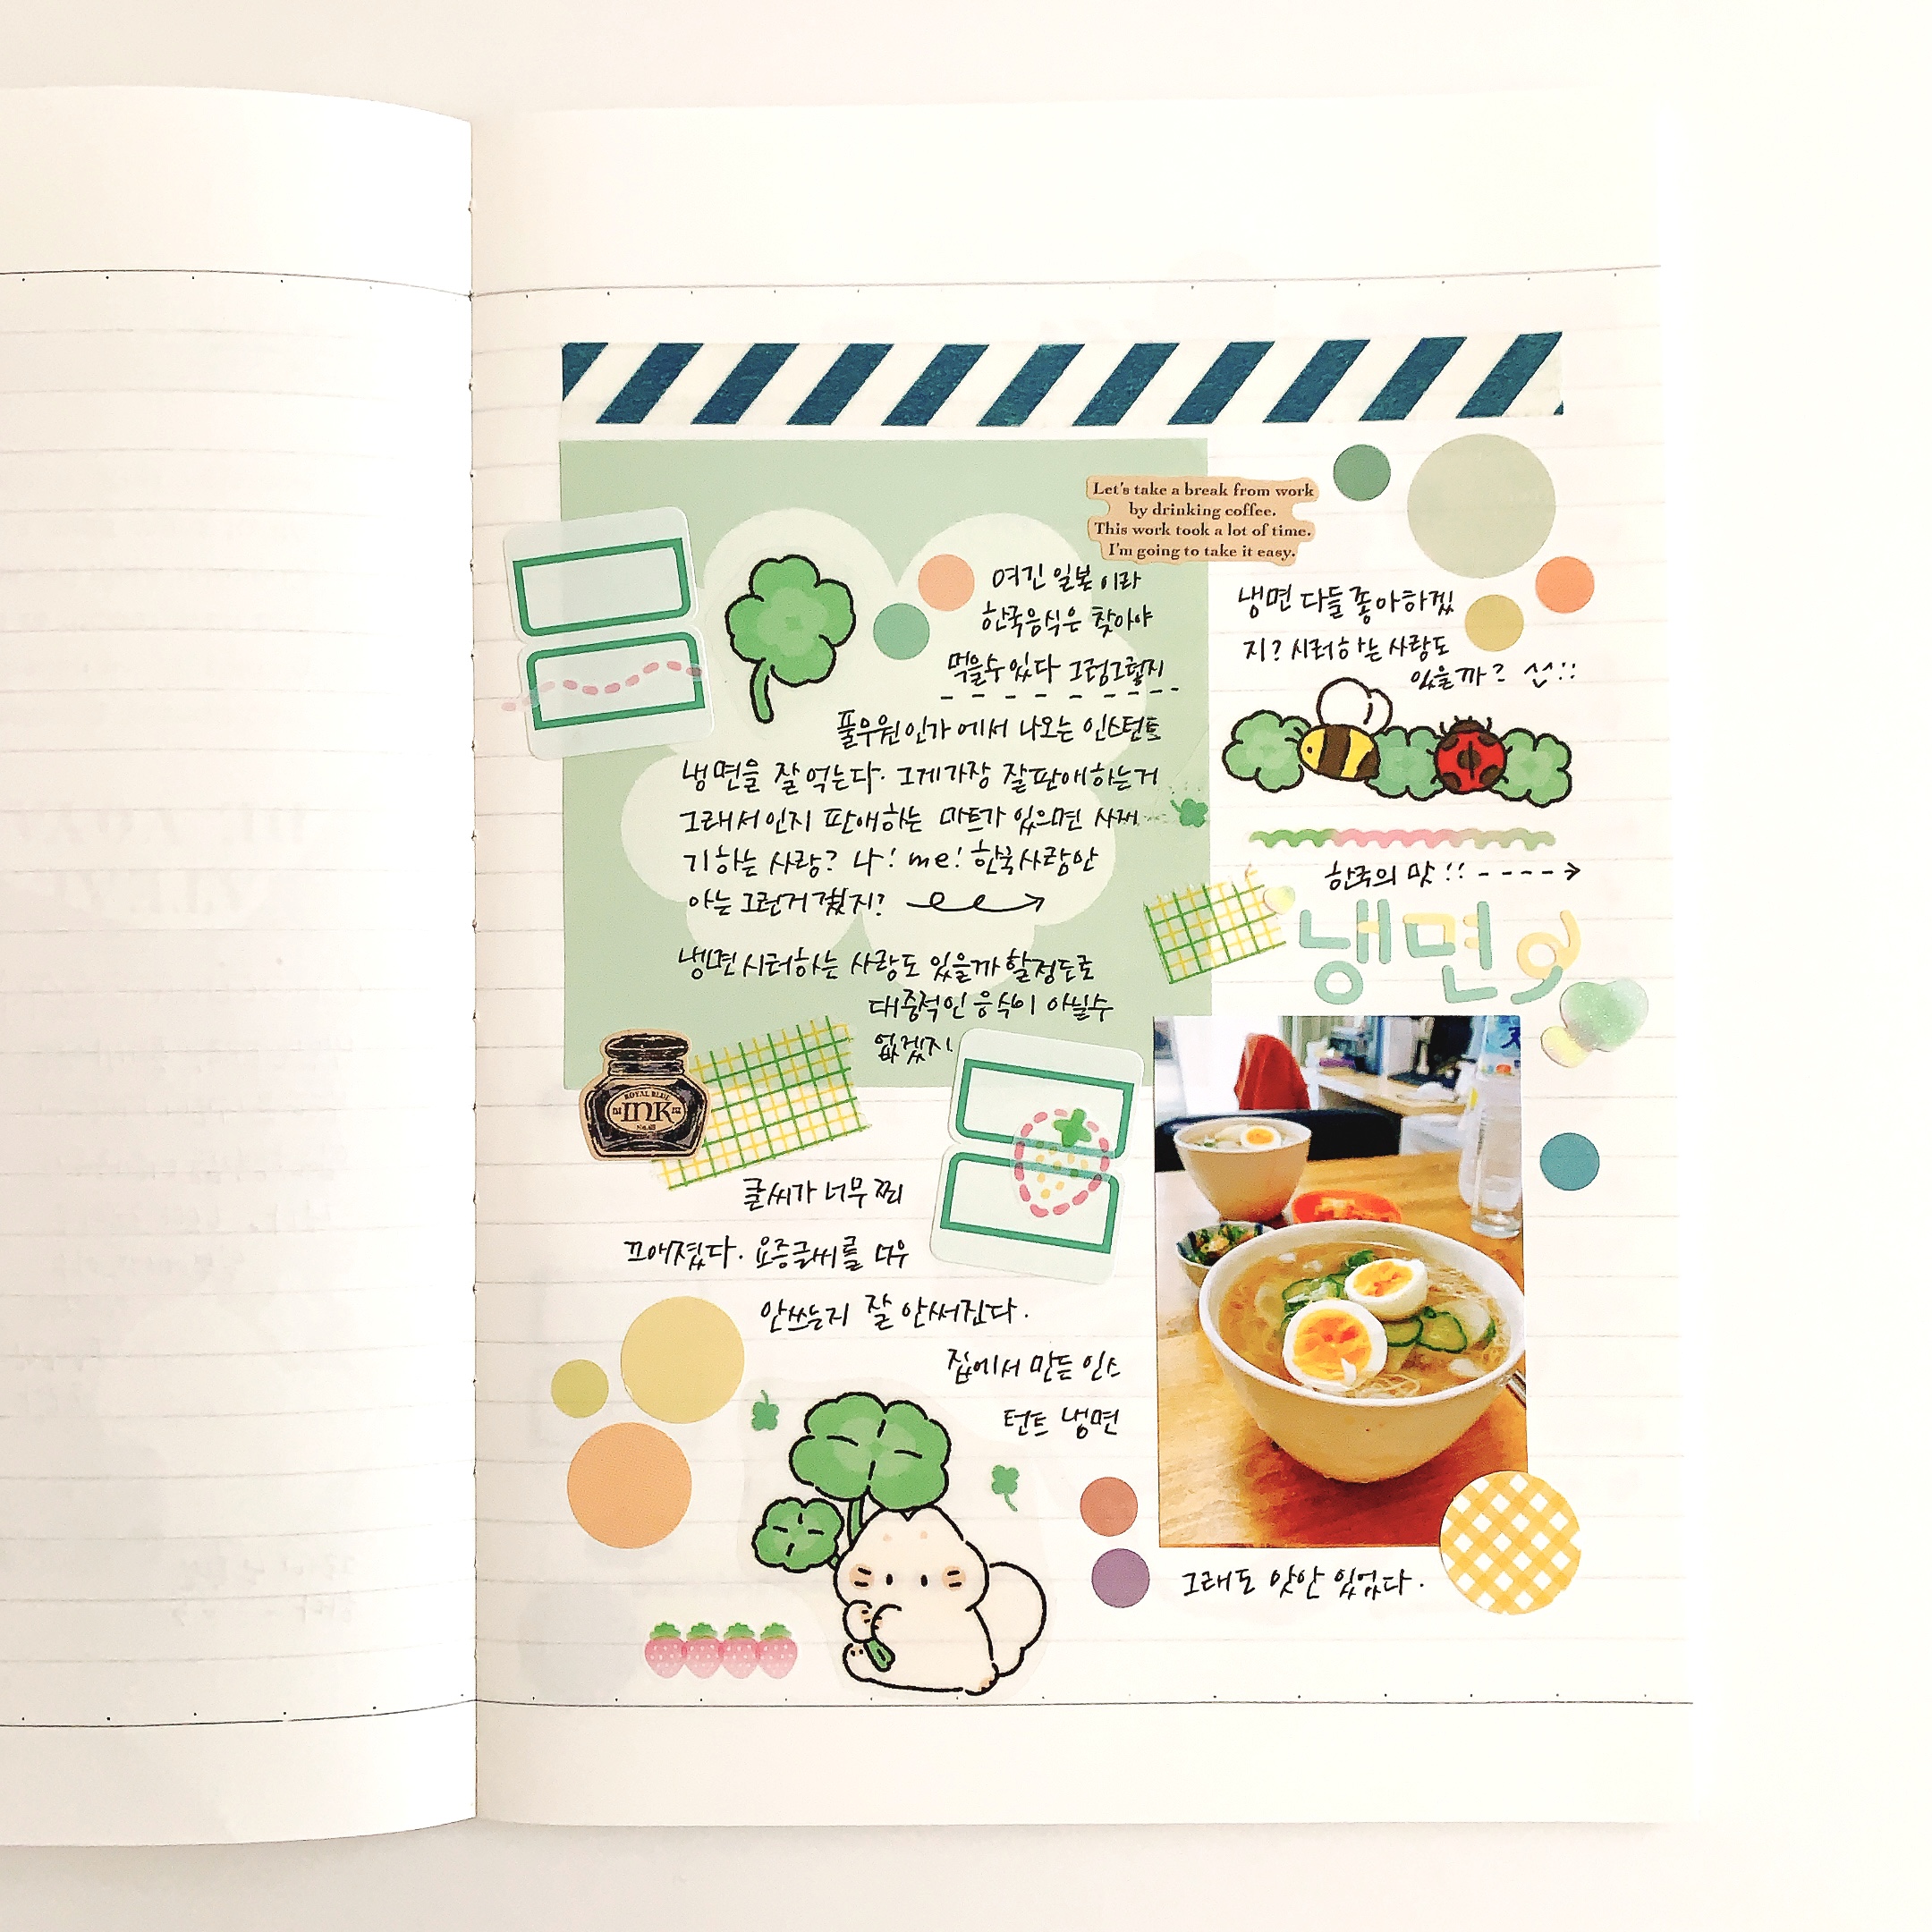 Let's take a break from work
by drinking coffee.
This work took a lot of time.
I'm going to take it easy.
여긴 일본이라
한국음식은 찾아야
먹을수있다 그럼그렇지
풀무원인가에서 나오는 인스턴트
냉면을 잘 먹는다. 그게가장 잘판애하는거
그래서인지 판애하는 마트가 있으면 사재
기하는 사람? 나! me! 한국사람만
아는 그런거 겠지?
냉면 시러하는 사람도 있을까 할정도로
대중적인 음식이 아닐수
없겠지.
냉면 다들 좋아하겠
지? 시러하는 사람도
있을까?
한국의 맛!!
냉면
ROYAL BLUE
INK
글씨가 너무 찌
끄애졌다. 요즘글씨를 너무
안쓰는지 잘 안써진다.
집에서 만든 인스
턴트 냉면
그래도 있었다.